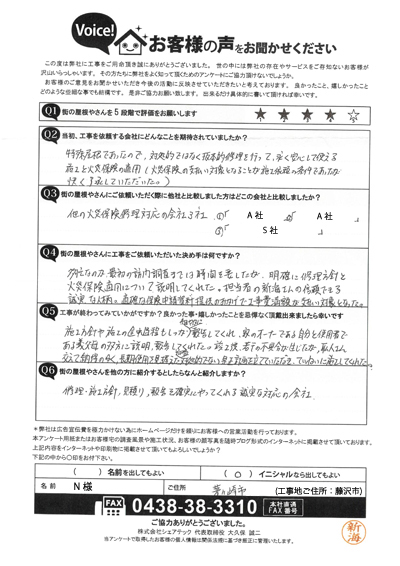 Voice!
お客様の声をお聞かせください
この度は弊社に工事をご用命頂き誠にありがとうございました。 世の中には弊社の存在やサービスをご存知ないお客様が
沢山いらっしゃいます。 その方たちに弊社をよく知って頂くためのアンケートにご協力頂けないでしょうか。
お客様のご意見をお聞かせいただき今後の活動に反映させていただきたいと考えております。 良かったこと、嬉しかったこと
どのような些細な事でも結構です。 是非ご協力お願い致します。 出来るだけ具体的に書いて頂ければ幸いです。
Q1 街の屋根やさんを5段階で評価をお願いします ★ ★ ★ ★ ☆
Q2 当初、工事を依頼する会社にどんなことを期待されていましたか?
特殊屋根であったので、対処的ではなく抜本的修理を行って、永く安心して使える
施工と火災保険の適用(火災保険の支払い対象となることが施工依頼の条件であったが
快く了承していただいた。)
Q3 街の屋根やさんにご依頼いただく際に他社と比較しました方はどこの会社と比較しましたか?
他の火災保険修理対応の会社3社 A社 A社
S社
Q4 街の屋根やさんに工事をご依頼いただいた決め手は何ですか?
最初の訪問調査までは時間を要したが、明確に修理方針と
火災保険適用について説明してくれた。担当者の新海さんの信頼できる
誠実な人柄。
Q5 工事が終わってみていかがですか? 良かった事・嬉しかったことを忌憚なく頂戴出来ましたら幸いです
施工方針や施工の途中経過もしっかり報告してくれ、家のオーナーである自分と使用者で
ある義父母の双方に説明、報告してくれた。
Q6 街の屋根やさんを他の方に紹介するとしたらなんと紹介しますか?
修理・施工方針、見積り、報告を確実にやってくれる誠実な対応の会社。
*弊社は広告宣伝費を極力かけない為にホームページだけを頼りにお客様への営業活動を行っております。
本アンケート用紙またはお客様宅の調査風景や施工状況、お客様の顔写真を随時ブログ形式のインターネットに掲載させて頂いております。
上記内容をインターネットや印刷物に掲載させて頂いてもよろしいでしょうか?
下記の中から○印をお付け下さい。
( )名前を出してもよい ( ○ )イニシャルなら出してもよい
名前 N様 ご住所 茅ヶ崎市 (工事地ご住所:藤沢市)
FAX 0438-38-3310 本社直通 FAX番号
ご協力ありがとうございました。
株式会社シェアテック 代表取締役 大久保 誠二
当アンケートで取得したお客様の個人情報は関係法規に基づき厳正に管理いたします。
新海